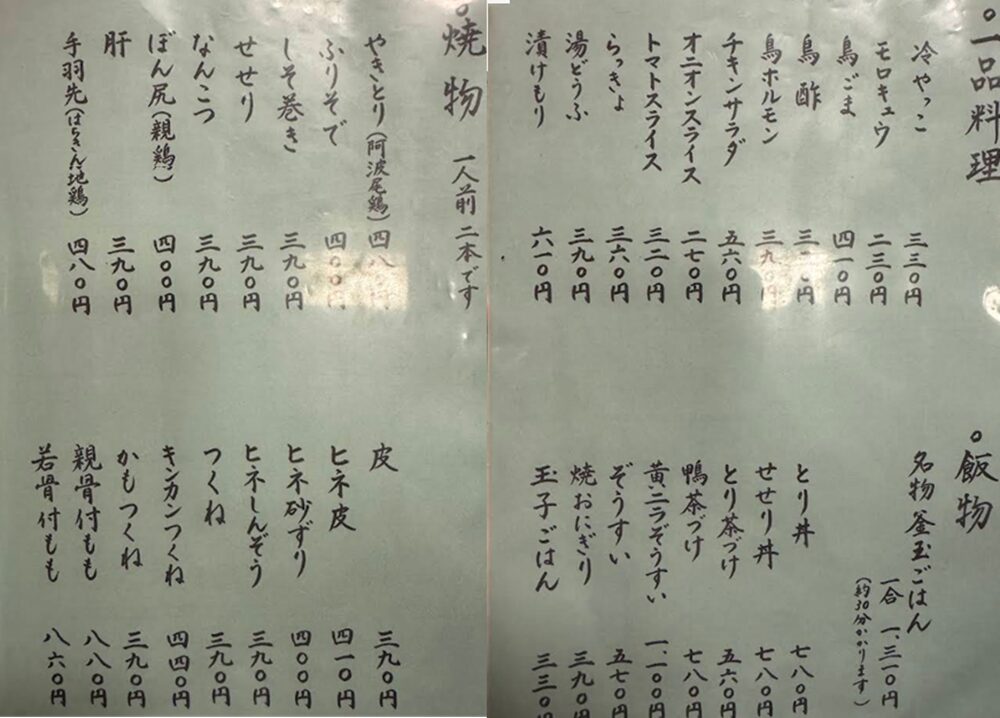 一品料理
冷やっこ 三三〇円
モロキュウ 二三〇円
鳥ごま 四一〇円
鳥酢
鳥ホルモン 三九〇円
チキンサラダ 五六〇円
オニオンスライス 二七〇円
トマトスライス 三二〇円
らっきょ 三六〇円
湯どうふ 三九〇円
漬けもり 六一〇円
飯物
名物 釜玉ごはん
一合 一、三一〇円
(約30分かかります)
とり丼 七八〇円
せせり丼 七八〇円
とり茶づけ 五六〇円
鴨茶づけ 七八〇円
黄ニラぞうすい 一、一〇〇円
ぞうすい 五七〇円
焼おにぎり 三九〇円
玉子ごはん 三三〇円
焼物 一人前 二本です
やきとり(阿波尾鶏) 四八〇円
ふりそで 四〇〇円
しそ巻き 三九〇円
せせり 三九〇円
なんこつ 三九〇円
ぼん尻(親鶏) 四〇〇円
肝 三九〇円
手羽先(はちきん地鶏) 四八〇円
皮 三九〇円
ヒネ皮 四一〇円
ヒネ砂ずり 四〇〇円
ヒネしんぞう 三九〇円
つくね 三九〇円
キンカンつくね 四四〇円
かもつくね 三九〇円
親骨付もも 八八〇円
若骨付もも 八六〇円